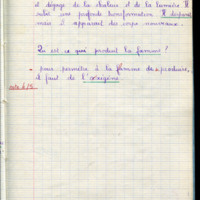 et dégage de la chaleur et de la lumière. Il
subit une profonde transformation. Il disparaît
mais il apparaît des corps nouveaux.
Qu'est ce qui produit la flamme ?
- pour permettre à la flamme de se produire,
il faut de l'oxygène